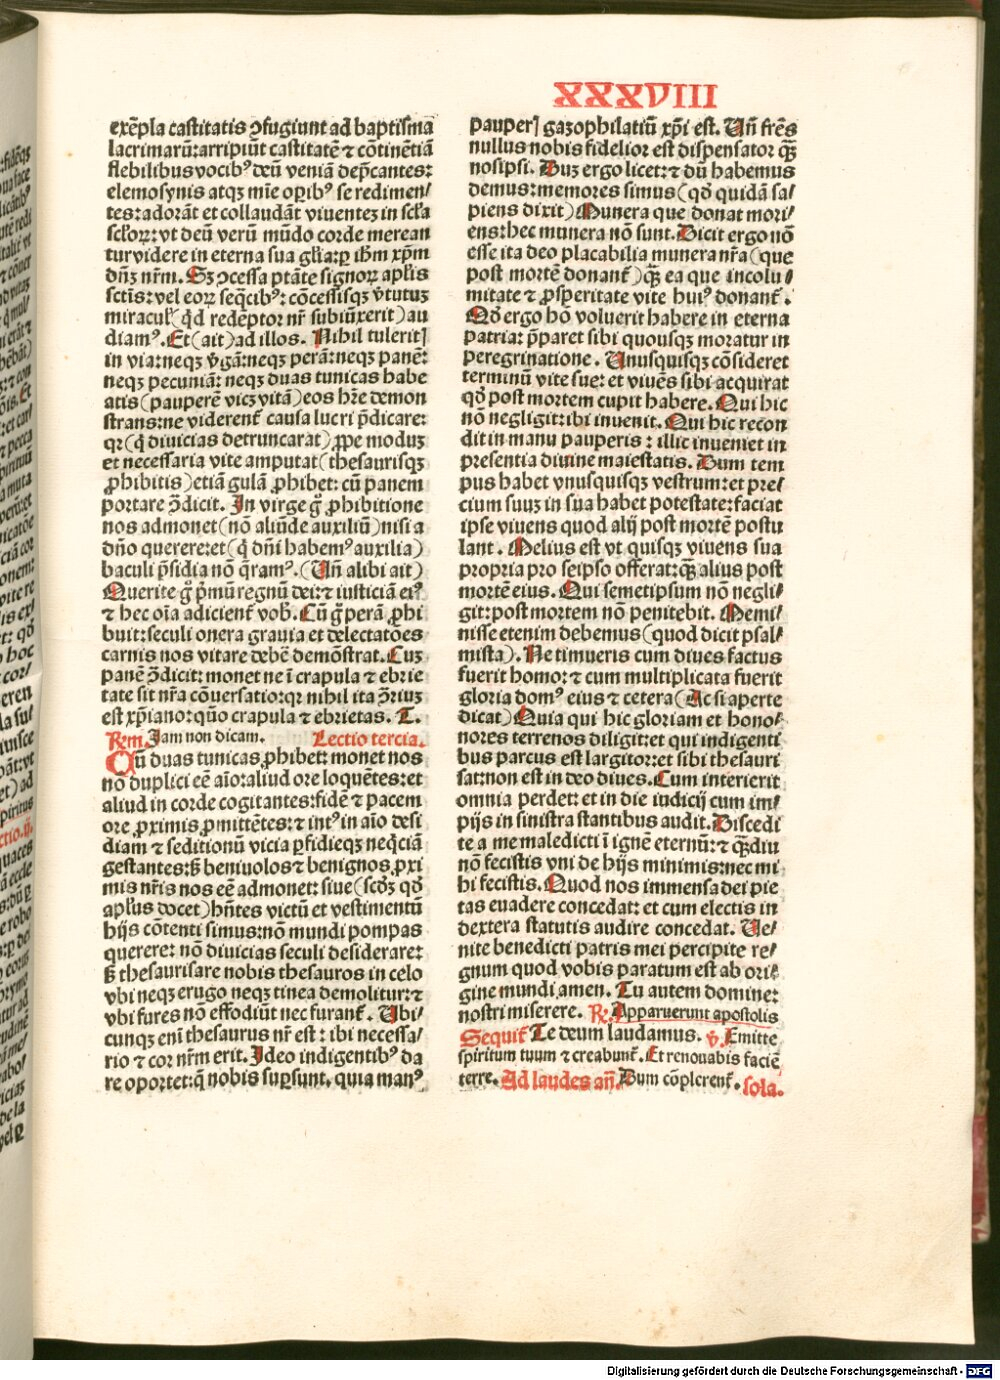 XXXVIII
exēpla castitatis ꝯfugiunt ad baptisma
lacrimarū: arripiūt castitatē ⁊ cōtinētiā
flebilibus vocibꝰ deū veniā dep̄cantes:
elemosynis atqꝫ mīe oꝑibꝰ se redimen⸗
tes: adorāt et collaudāt viuentez in scl̄a
scl̄oꝝ: vt deū verū mūdo corde merean
tur videre in eterna sua gl̄ia: ꝑ ihm̄ xp̄m
dn̄ꝫ nr̄m. Sꝫ ꝯcessa ptāte signoꝝ apl̄is
sctīs: vel eoꝝ seq̄cibꝰ: cōcessisqꝫ v̄tutuꝫ
miracul̓ (qd̄ redēptor nr̄ subiūxerit) au
diamꝰ. Et (ait) ad illos. Nihil tuleritꝭ
in via: neqꝫ v̄gā: neqꝫ perā: neqꝫ panē:
neqꝫ pecuniā: neqꝫ duas tunicas habe
atis (pauperē vicꝫ vitā) eos hr̄e demon
strans: ne viderent̄ causa lucri p̄dicare:
qr (q̄ diuicias detruncarat) ꝓpe moduꝫ
et necessaria vite amputat (thesaurisqꝫ
ꝓhibitis) etiā gulā ꝓhibet: cū panem
portare ꝯ̄dicit. In virge g̊ ꝓhibitione
nos admonet (nō aliūde auxiliū) nisi a
dn̄o querere: et (q̄ dn̄i habemꝰ auxilia)
baculi p̄sidia nō q̄ramꝰ. (Un̄ alibi ait)
Querite g̊ p̄mū regnū dei: ⁊ iusticiā eiꝰ
⁊ hec oīa adicient̄ vob̄. Cū g̊ perā ꝓhi
buit: seculi onera grauia et delectatōes
carnis nos vitare debē demōstrat. Cuꝫ
panē ꝯ̄dicit: monet ne ī crapula ⁊ ebrie
tate sit nr̄a cōuersatio: qr nihil ita ꝯ̄riuꝫ
est xp̄iano: quo crapula ⁊ ebrietas. T.
Rm̄. Jam non dicam. Lectio tercia.
Cū duas tunicas ꝓhibet: monet nos
nō duplici eē aīo: aliud ore loquētes: et
aliud in corde cogitantes: fidē ⁊ pacem
ore ꝓximis ꝓmittētes: ⁊ intꝰ in aīo desi
diam ⁊ seditionū vicia ꝑfidieqꝫ neq̄ciā
gestantes: sꝫ beniuolos ⁊ benignos ꝓxi
mis nr̄is nos eē admonet: siue (scd̓ꝫ qd̄
apl̄us docet) hn̄tes victū et vestimentū
hijs cōtenti simus: nō mundi pompas
querere: nō diuicias seculi desiderare:
sꝫ thesaurisare nobis thesauros in celo
vbi neqꝫ erugo neqꝫ tinea demolitur: ⁊
vbi fures nō effodiūt nec furant̄. Ubi⸗
cunqꝫ eni thesaurus nr̄ est: ibi necessa⸗
rio ⁊ cor nr̄m erit. Ideo indigentibꝰ da
re oportet: q̄ nobis suꝑsunt, quia manꝰ
pauperꝭ gazophilatiū xp̄i est. Un̄ fr̄es
nullus nobis fidelior est dispensator q̄ꝫ
nosipsi. Duꝫ ergo licet: ⁊ dū habemus
demus: memores simus (qd̄ quidā sa⸗
piens dixit) Munera que donat mori⸗
ens: hec munera nō sunt. Dicit ergo nō
esse ita deo placabilia munera nr̄a (que
post mortē donant̄) q̄ꝫ ea que incolu⸗
mitate ⁊ ꝓsperitate vite huiꝰ donant̄.
Qd̄ ergo hō voluerit habere in eterna
patria: p̄paret sibi quousqꝫ moratur in
peregrinatione. Unusquisqꝫ cōsideret
terminū vite sue: et viuēs sibi acquirat
qd̄ post mortem cupit habere. Qui hic
nō negligit: ibi inuenit. Qui hic recon
dit in manu pauperis: illic inueniet in
presentia diuine maiestatis. Dum tem
pus habet vnusquisqꝫ vestrum: et pre⸗
cium suuꝫ in sua habet potestate: faciat
ipse viuens quod alij post mortē postu
lant. Melius est vt quisqꝫ viuens sua
propria pro seipso offerat: q̄ꝫ alius post
mortē eius. Qui semetipsum nō negli⸗
git: post mortem nō penitebit. Memi⸗
nisse etenim debemus (quod dicit psal⸗
mista). Ne timueris cum diues factus
fuerit homo: ⁊ cum multiplicata fuerit
gloria domꝰ eius ⁊ cetera (Ac si aperte
dicat) Quia qui hic gloriam et hono⸗
nores terrenos diligit: et qui indigenti
bus parcus est largitor: et sibi thesauri
sat: non est in deo diues. Cum interierit
omnia perdet: et in die iudicij cum im⸗
pijs in sinistra stantibus audit. Discedi
te a me maledicti ī ignē eternū: ⁊ q̄ꝫdiu
nō fecistis vni de hijs minimis: nec mi⸗
hi fecistis. Quod nos immensa dei pie
tas euadere concedat: et cum electis in
dextera statutis audire concedat. Ue⸗
nite benedicti patris mei percipite re⸗
gnum quod vobis paratum est ab ori⸗
gine mundi amen. Tu autem domine:
nostri miserere. R. Apparuerunt apostolis
Sequit̄ Te deum laudamus. v̄. Emitte
spiritum tuum ⁊ creabunt̄. Et renouabis faciē
terre. Ad laudes an̄. Dum cōplerent̄. sola.
Digitalisierung gefördert durch die Deutsche Forschungsgemeinschaft - DFG